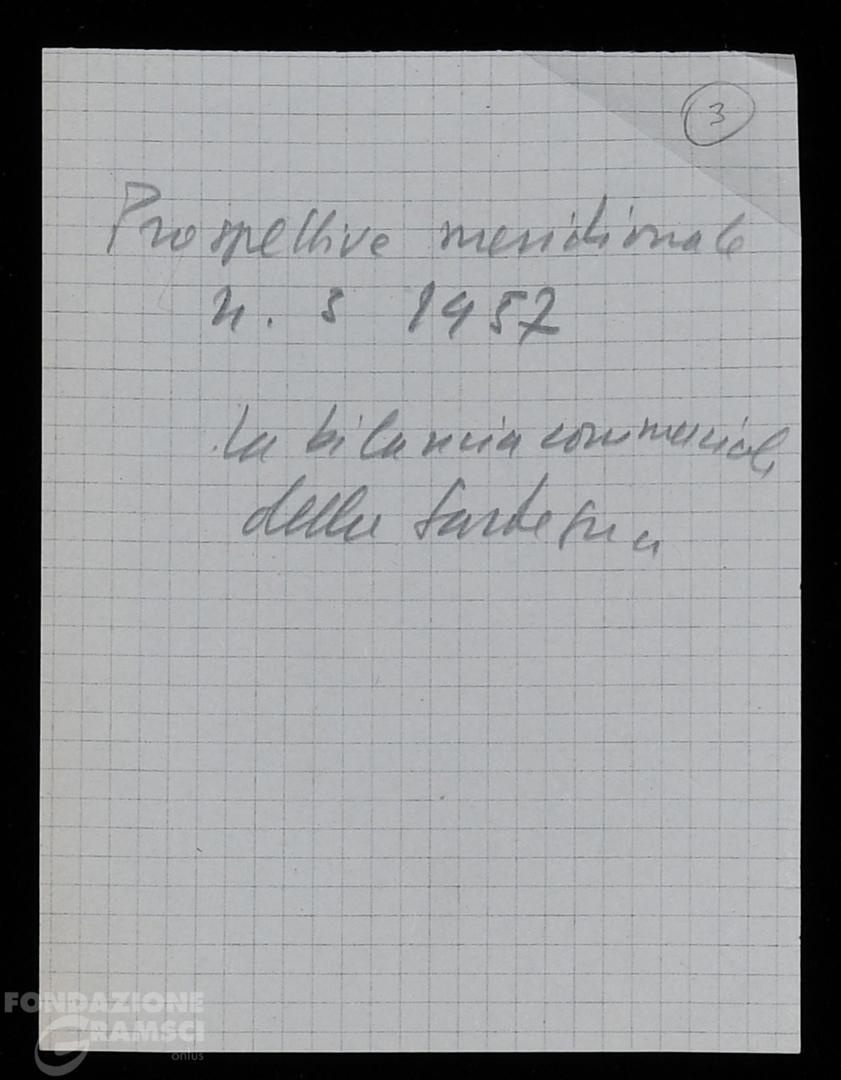 3
Prospettive meridionale
n. 3 1957
La bilancia commerciale
della Sardegna
FONDAZIONE
GRAMSCI
onlus